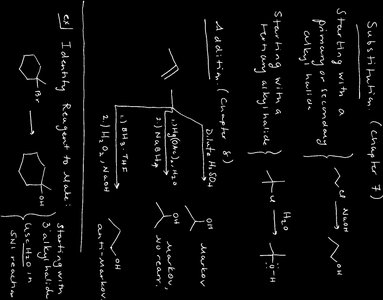 Substitution (Chapter 7)
Starting with a
primary or secondary
alkyl halide
Cl
NaOH
OH
Starting with a
tertiary alkyl halide
Cl
H2O
:Ö-H
Addition (Chapter 8)
Dilute H2SO4
OH
Markov
1) Hg(OAc)2, H2O
2) NaBH4
OH
Markov,
No rearr.
1) BH3·THF
2) H2O2, NaOH
OH
anti-Markov.
ex) Identify Reagent to Make:
Br
OH
Starting with
3° alkyl halide
Use H2O in
SN1 reaction